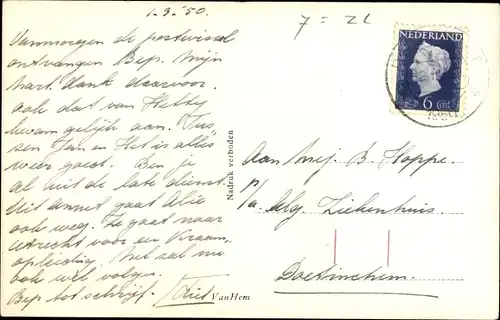 1-3-'50.
7 = ZL
Vanmorgen de postwissel
ontvangen Bep. Mijn
hart. dank daarvoor.
ook dat van Hetty
kwam gelijk aan. Tus-
sen Jan en Het is alles
weer goed. Ben je
al uit de late dienst.
Uit Annet gaat Alie
ook weg. Ze gaat naar
Utrecht voor een Kraam-
opleiding. Het zal me
ook wel volgen.
Bep tot schrijf.
Nadruk verboden
VanHem
NEDERLAND
6 Cent
Aan Mej. B. Hoppe.
p/a. Alg. Ziekenhuis.
Doetinchem.